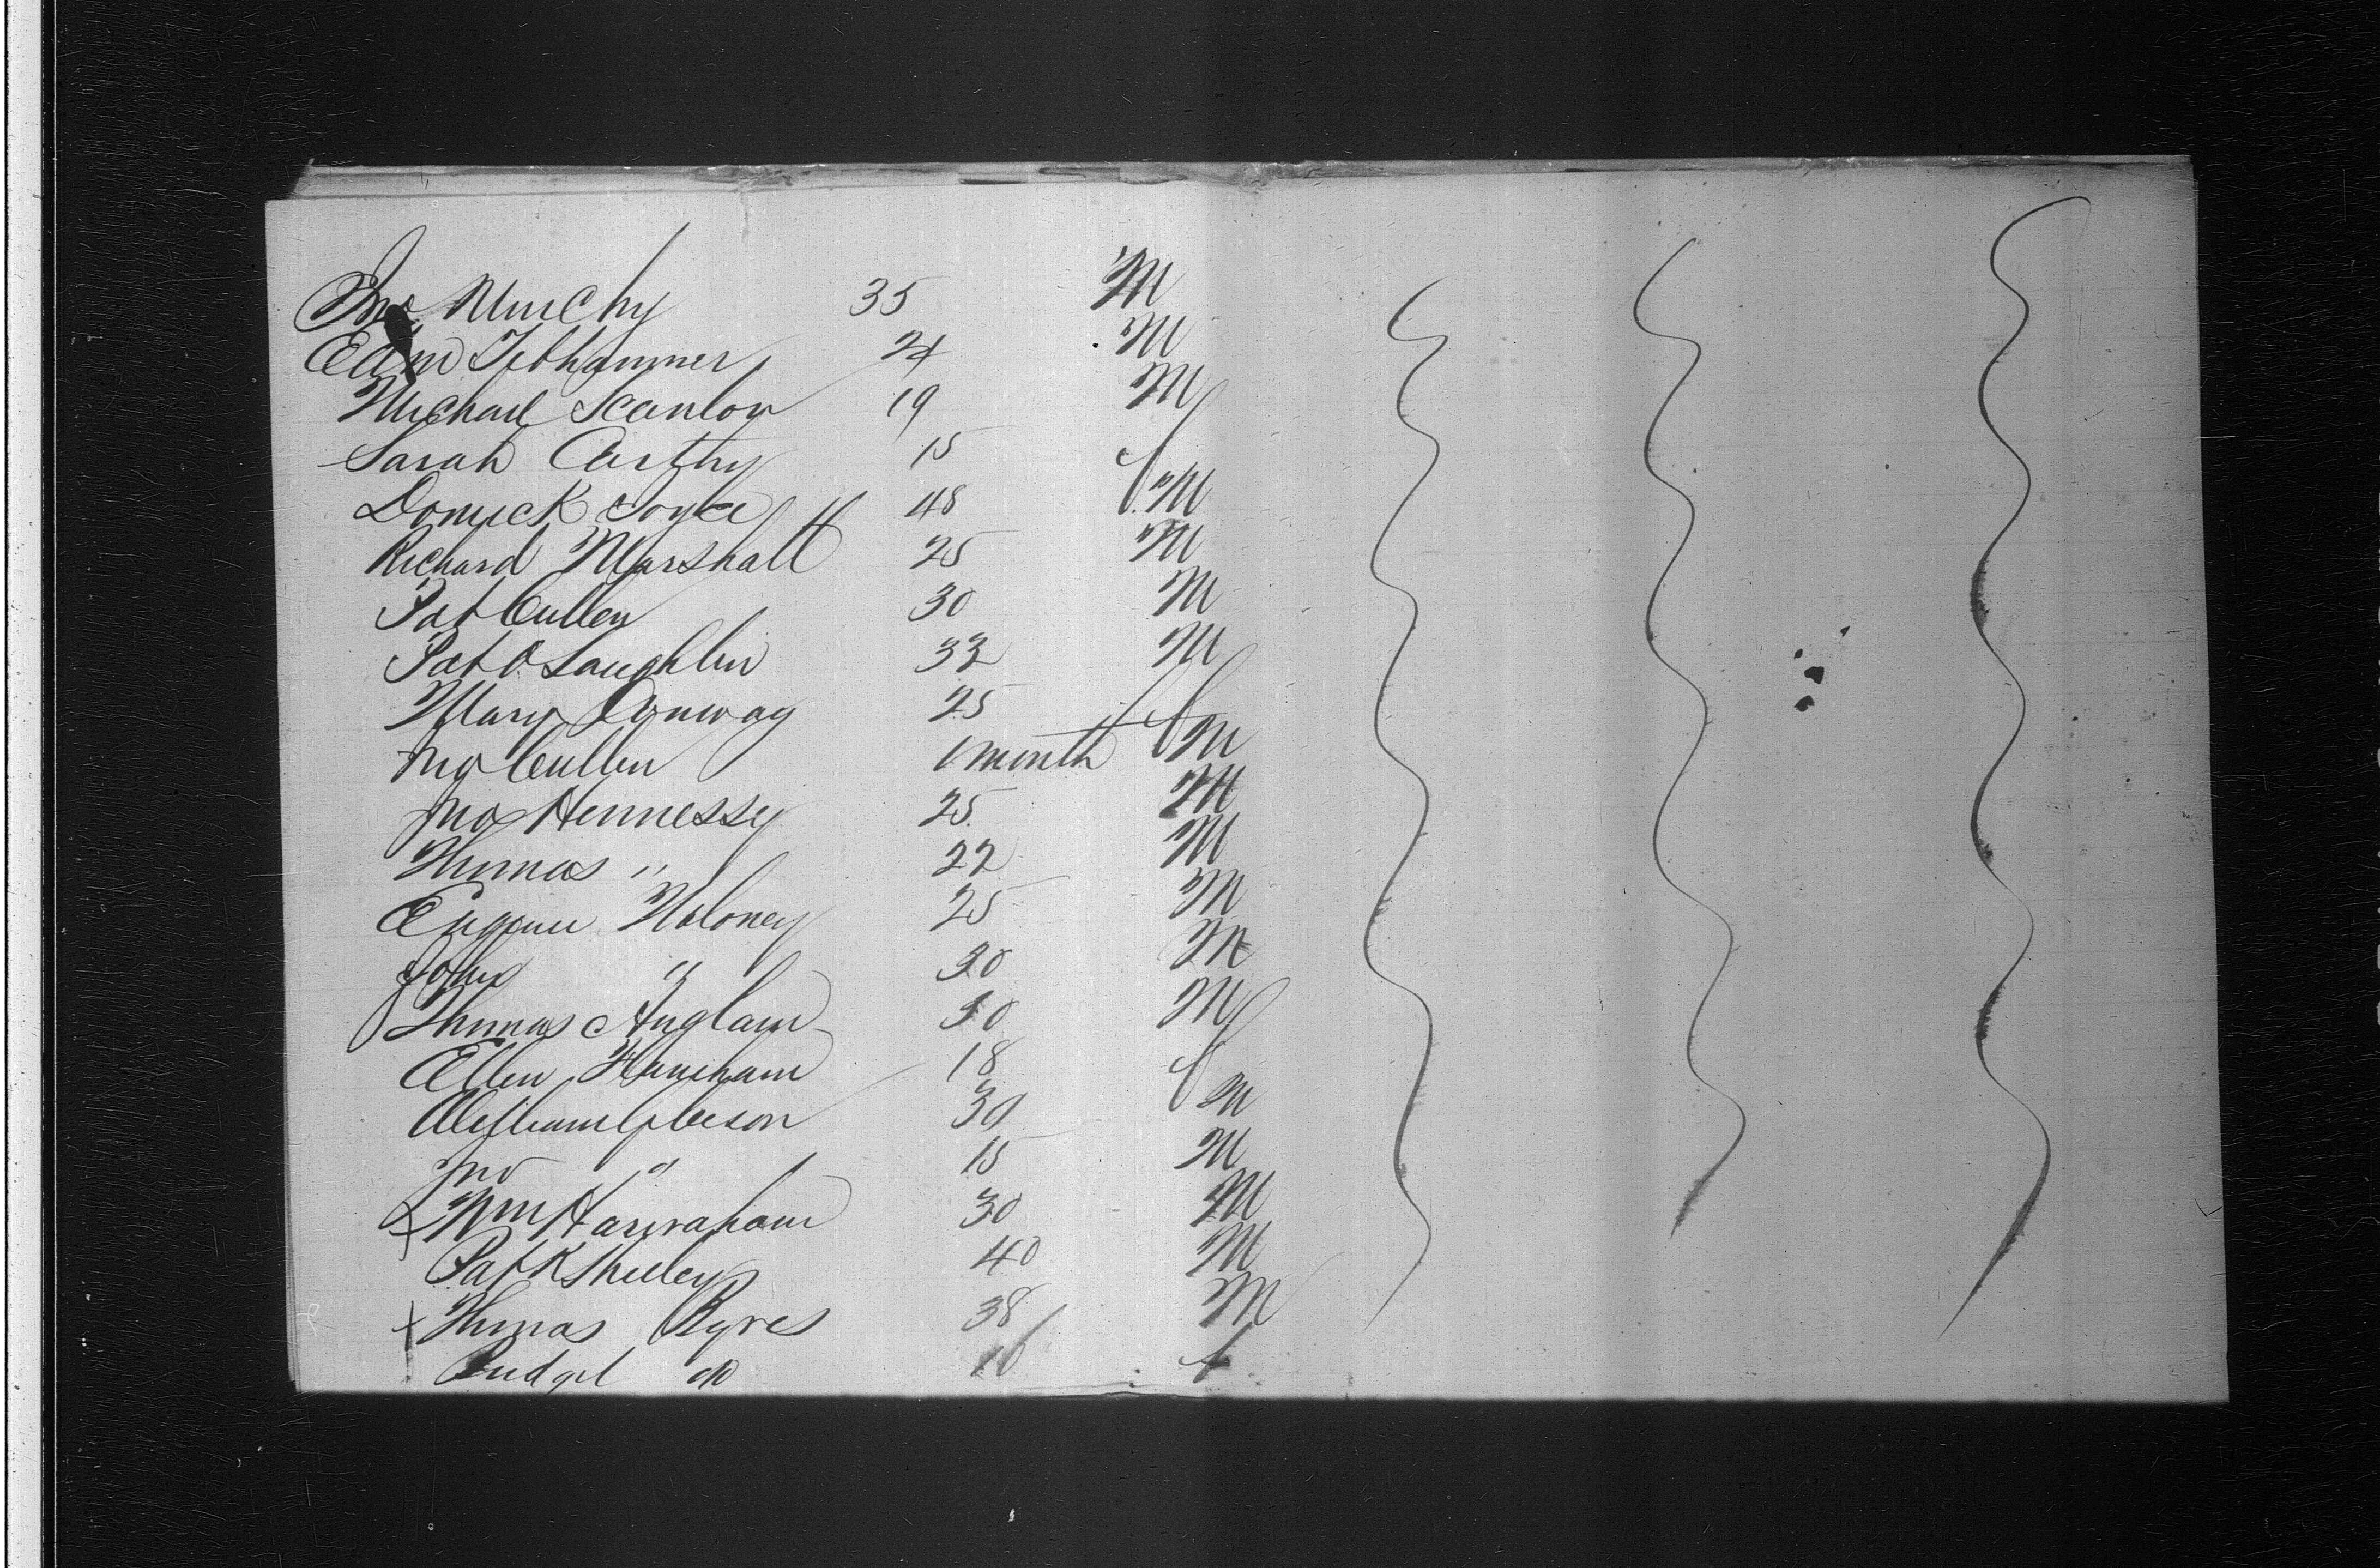 Jno Murchy 35 M
Edm Fetham 24 M
Michael Scanlon 19 M
Sarah Carthy 15 f
Domick Joyce 48 M
Richard Marshall 25 M
Pat Cullen 30 M
Pat O Laughlin 32 M
Mary Conway 25 f
Jno Cullen 1 month M
Jno Hennessy 25 M
Thomas " 22 M
Eugene Moloney 25 M
John " 30 M
Thomas Anglam 30 M
Ellen 18 f
William Gleeson 30 M
Jno " 15 M
Wm Hanrahan 30 M
Patk Sheeley 40 M
x Thomas Pyres 38 M
Bridget do 16 f